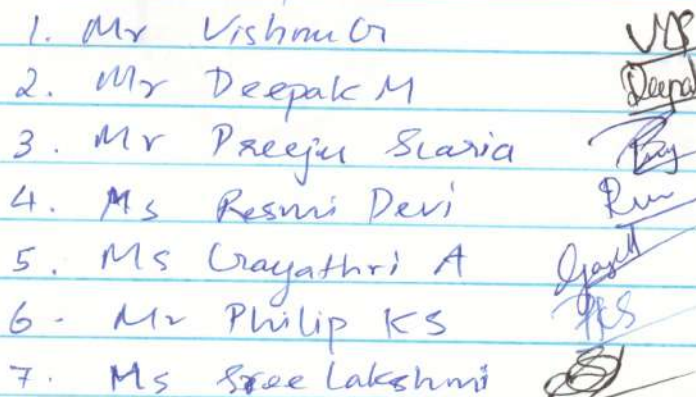 1. Mr Vishnu G
2. Mr Deepak M Deepak
3. Mr Preeju Scaria
4. Ms Resmi Devi
5. Ms Gayathri A
6. Mr Philip KS PKS
7. Ms Sree Lakshmi